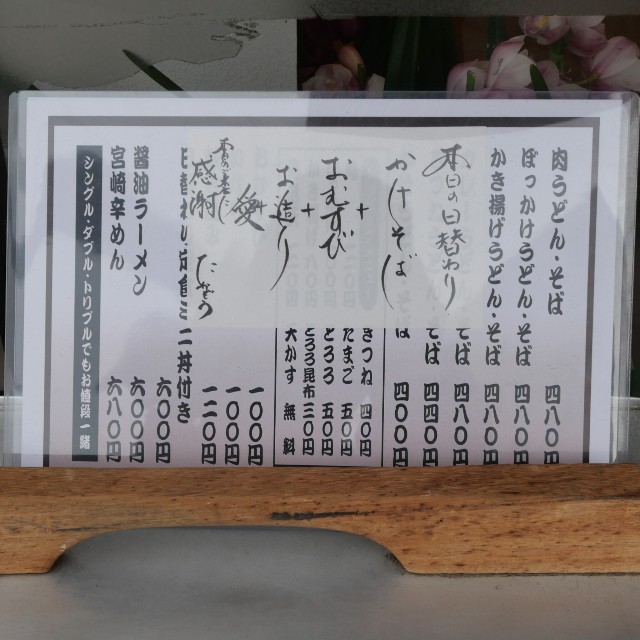 肉うどん・そば 四八〇円
ぼっかけうどん・そば 四八〇円
かき揚げうどん・そば 四八〇円
そば 四八〇円
そば 四四〇円
そば 四〇〇円
本日の日替わり
かけそば
+
おむすび
+
お造り
+
愛
感謝
きつね 四〇円
たまご 五〇円
とろろ 五〇円
とろろ昆布 三〇円
天かす 無料
一〇〇円
一〇〇円
一二〇円
ミニ丼付き 六〇〇円
醤油ラーメン 六〇〇円
宮崎辛めん 六八〇円
シングル・ダブル・トリプルでもお値段一緒